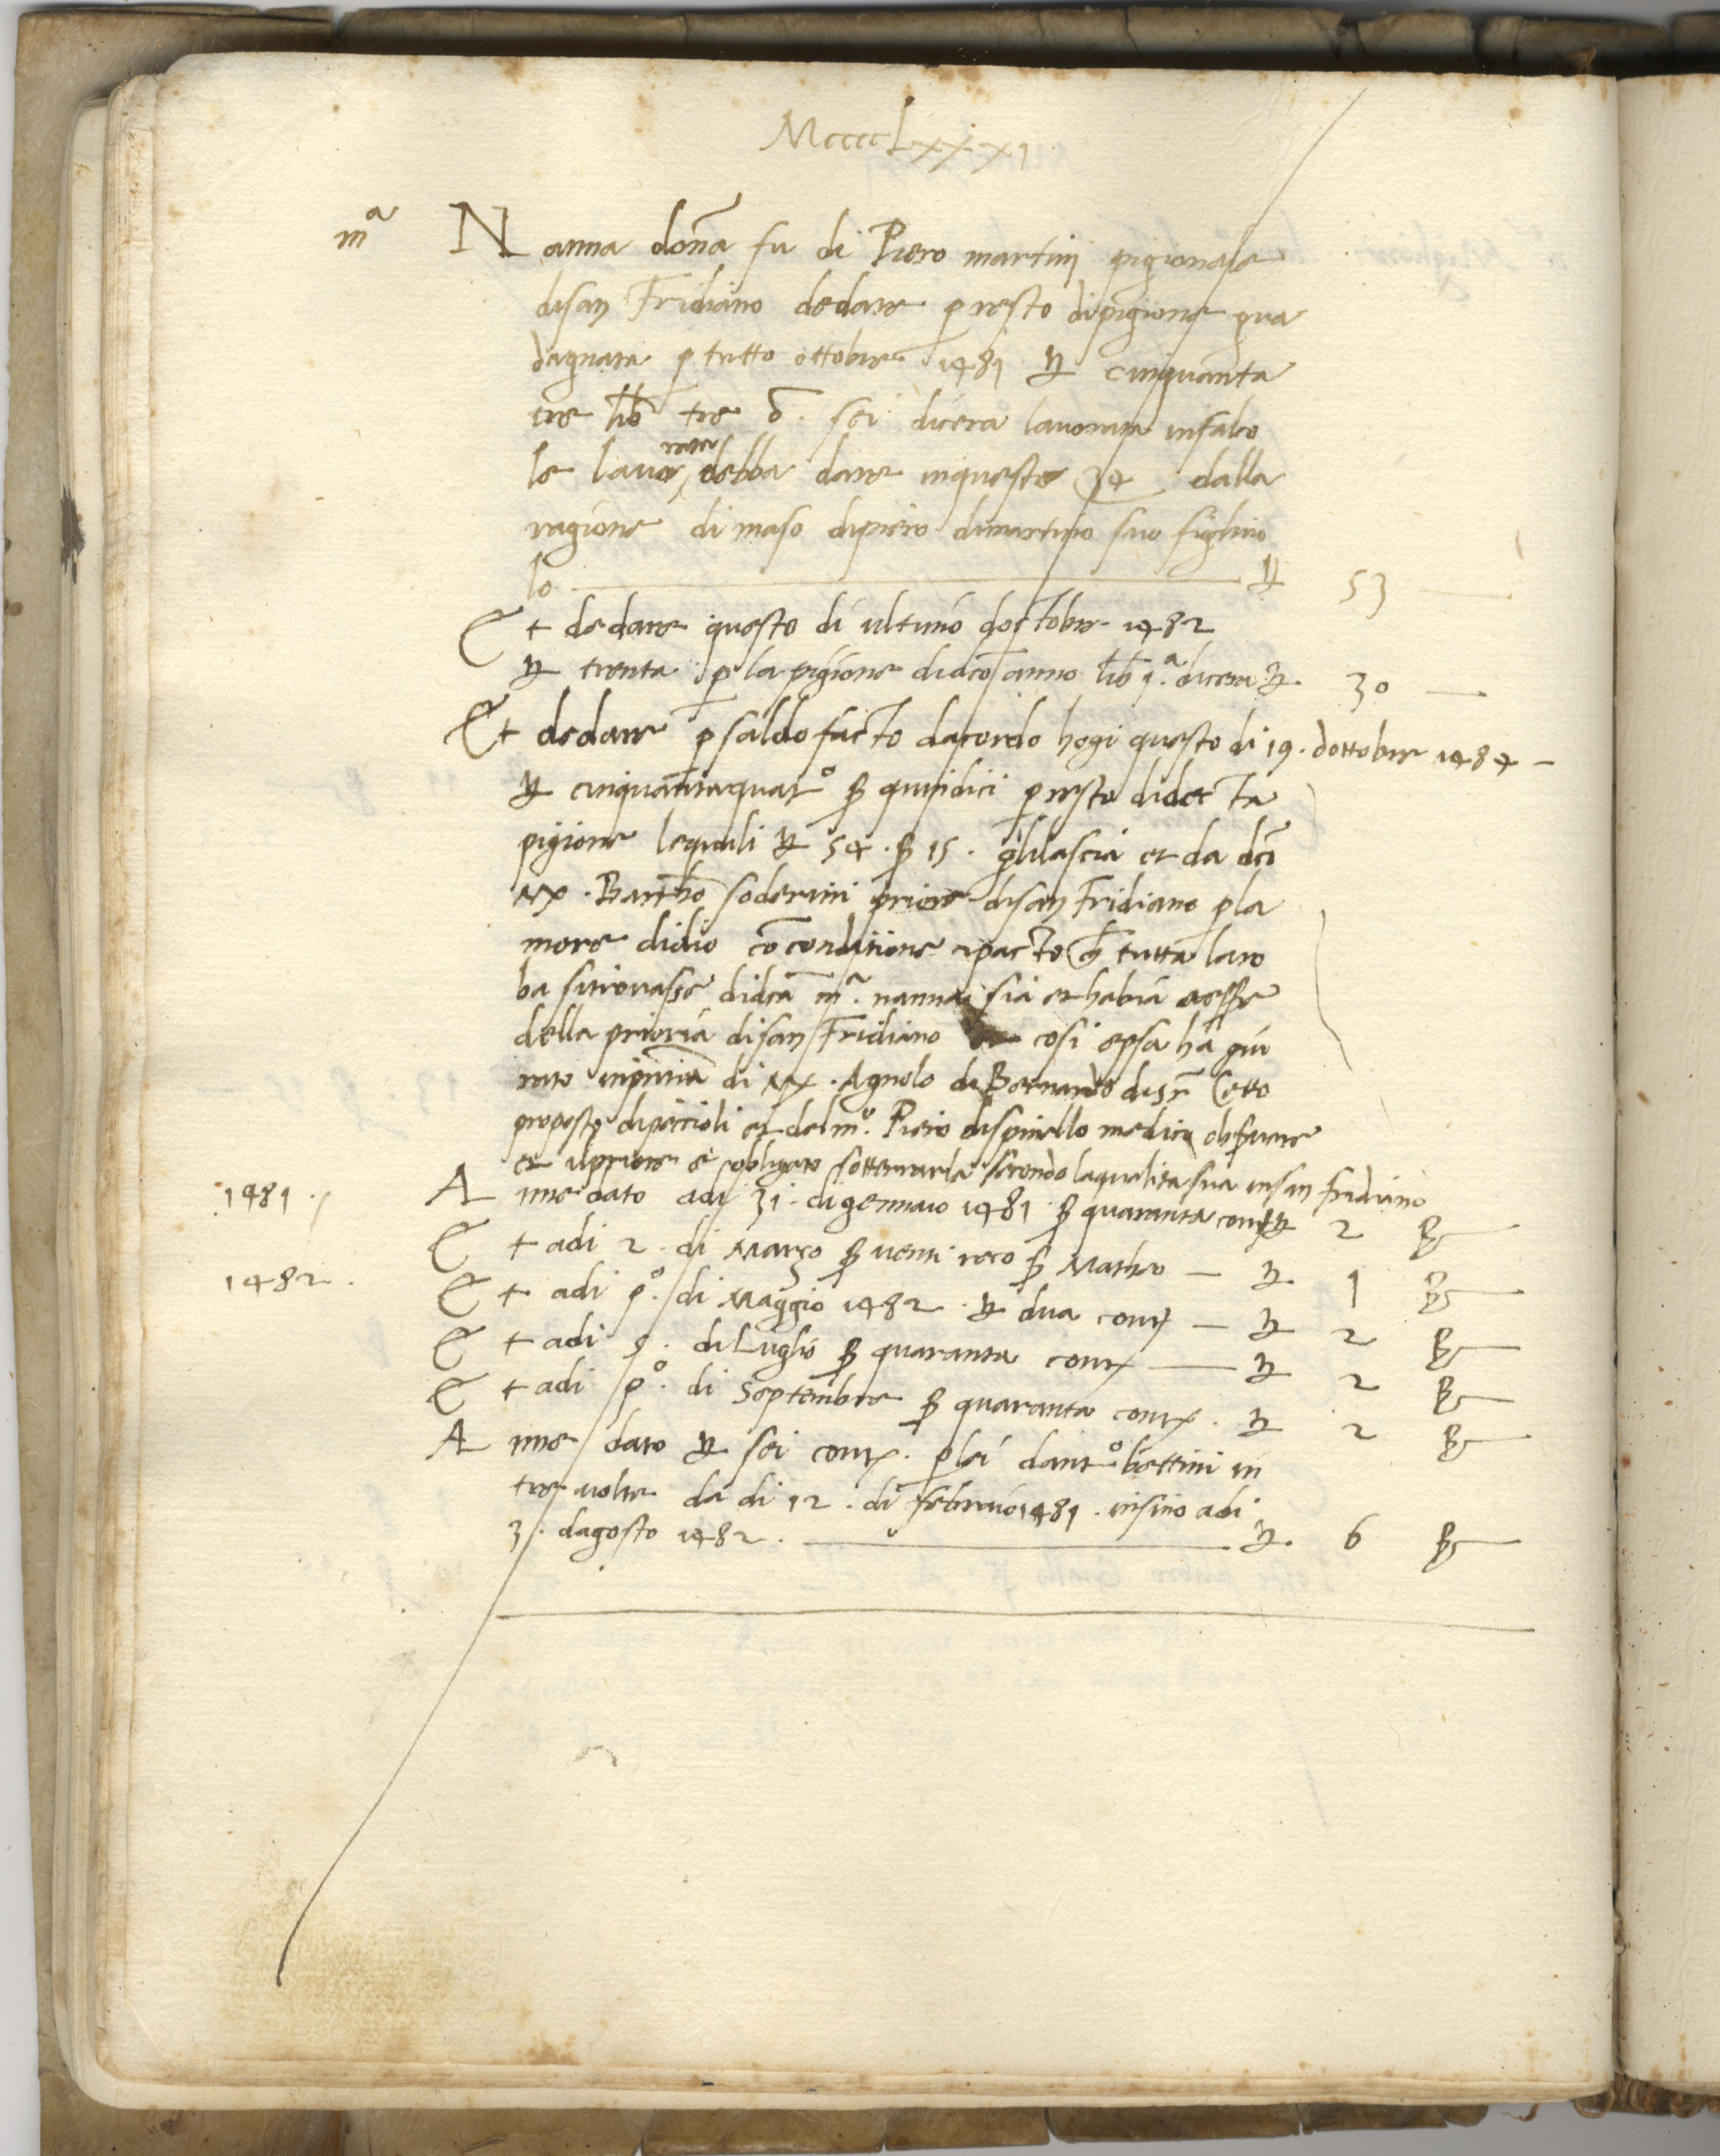 MccccLxxxi
mª Nanna don̄a fu di Piero martinj pigionale
disan Fridiano dedare p resto dipigione gua
dagnata p tutto ottobre 1481 ₶ cinquanta
tre lib̄ tre ō. sei dicera lavorata in falco
le lavorate debba dare inquesto 34 dalla
ragione di maso dipiero dimartino suo figliuo
lo ₶ 53
Et dedare questo dì ultimo doctobre 1482
₶ trenta p la pigione didc̄o anno lib̄ 1.ª dicera ₶. 30
Et dedare p saldo facto dacordo hogi questo di 19. dottobre 1484
₶ cinquantaquatº β quindici p resto didecta
pigione lequali ₶ 54. β 15. glilascia et da dc̄i
Mr. Barth̄o soderini priore disan Fridiano p la
more didio cō conditione et pacto ch̄ tutta laro
ba sitrovasse didc̄a mª. nanna sia et habia aesse
della prioria disan Fridiano et cosi epsa ha giu
rato inpn̄tia di Mr. Agnolo di Bernardo diSr̄ Cetto
proposto dipeccioli et del mº. Piero dispinello medico
et ilpriore è obligato sotterrarla secondo laqualita sua insan fridiano
1481. Anne dato adi 31. digennaio 1481 β quaranta cont ₶ 2 β
Et adi 2. di Marzo β venti reco β Matheo ₶ 1 β
1482. Et adi pº. di Maggio 1482. ₶ dua cont ₶ 2 β
Et adi 9. diLuglio β quaranta cont ₶ 2 β
Et adi pº. di Septembre β quaranta cont. ₶ 2 β
Anne dato ₶ sei cont. p lei dantº bettini in
tre volte da di 12. di febraio 1481. insino adi
31. dagosto 1482. ₶. 6 β